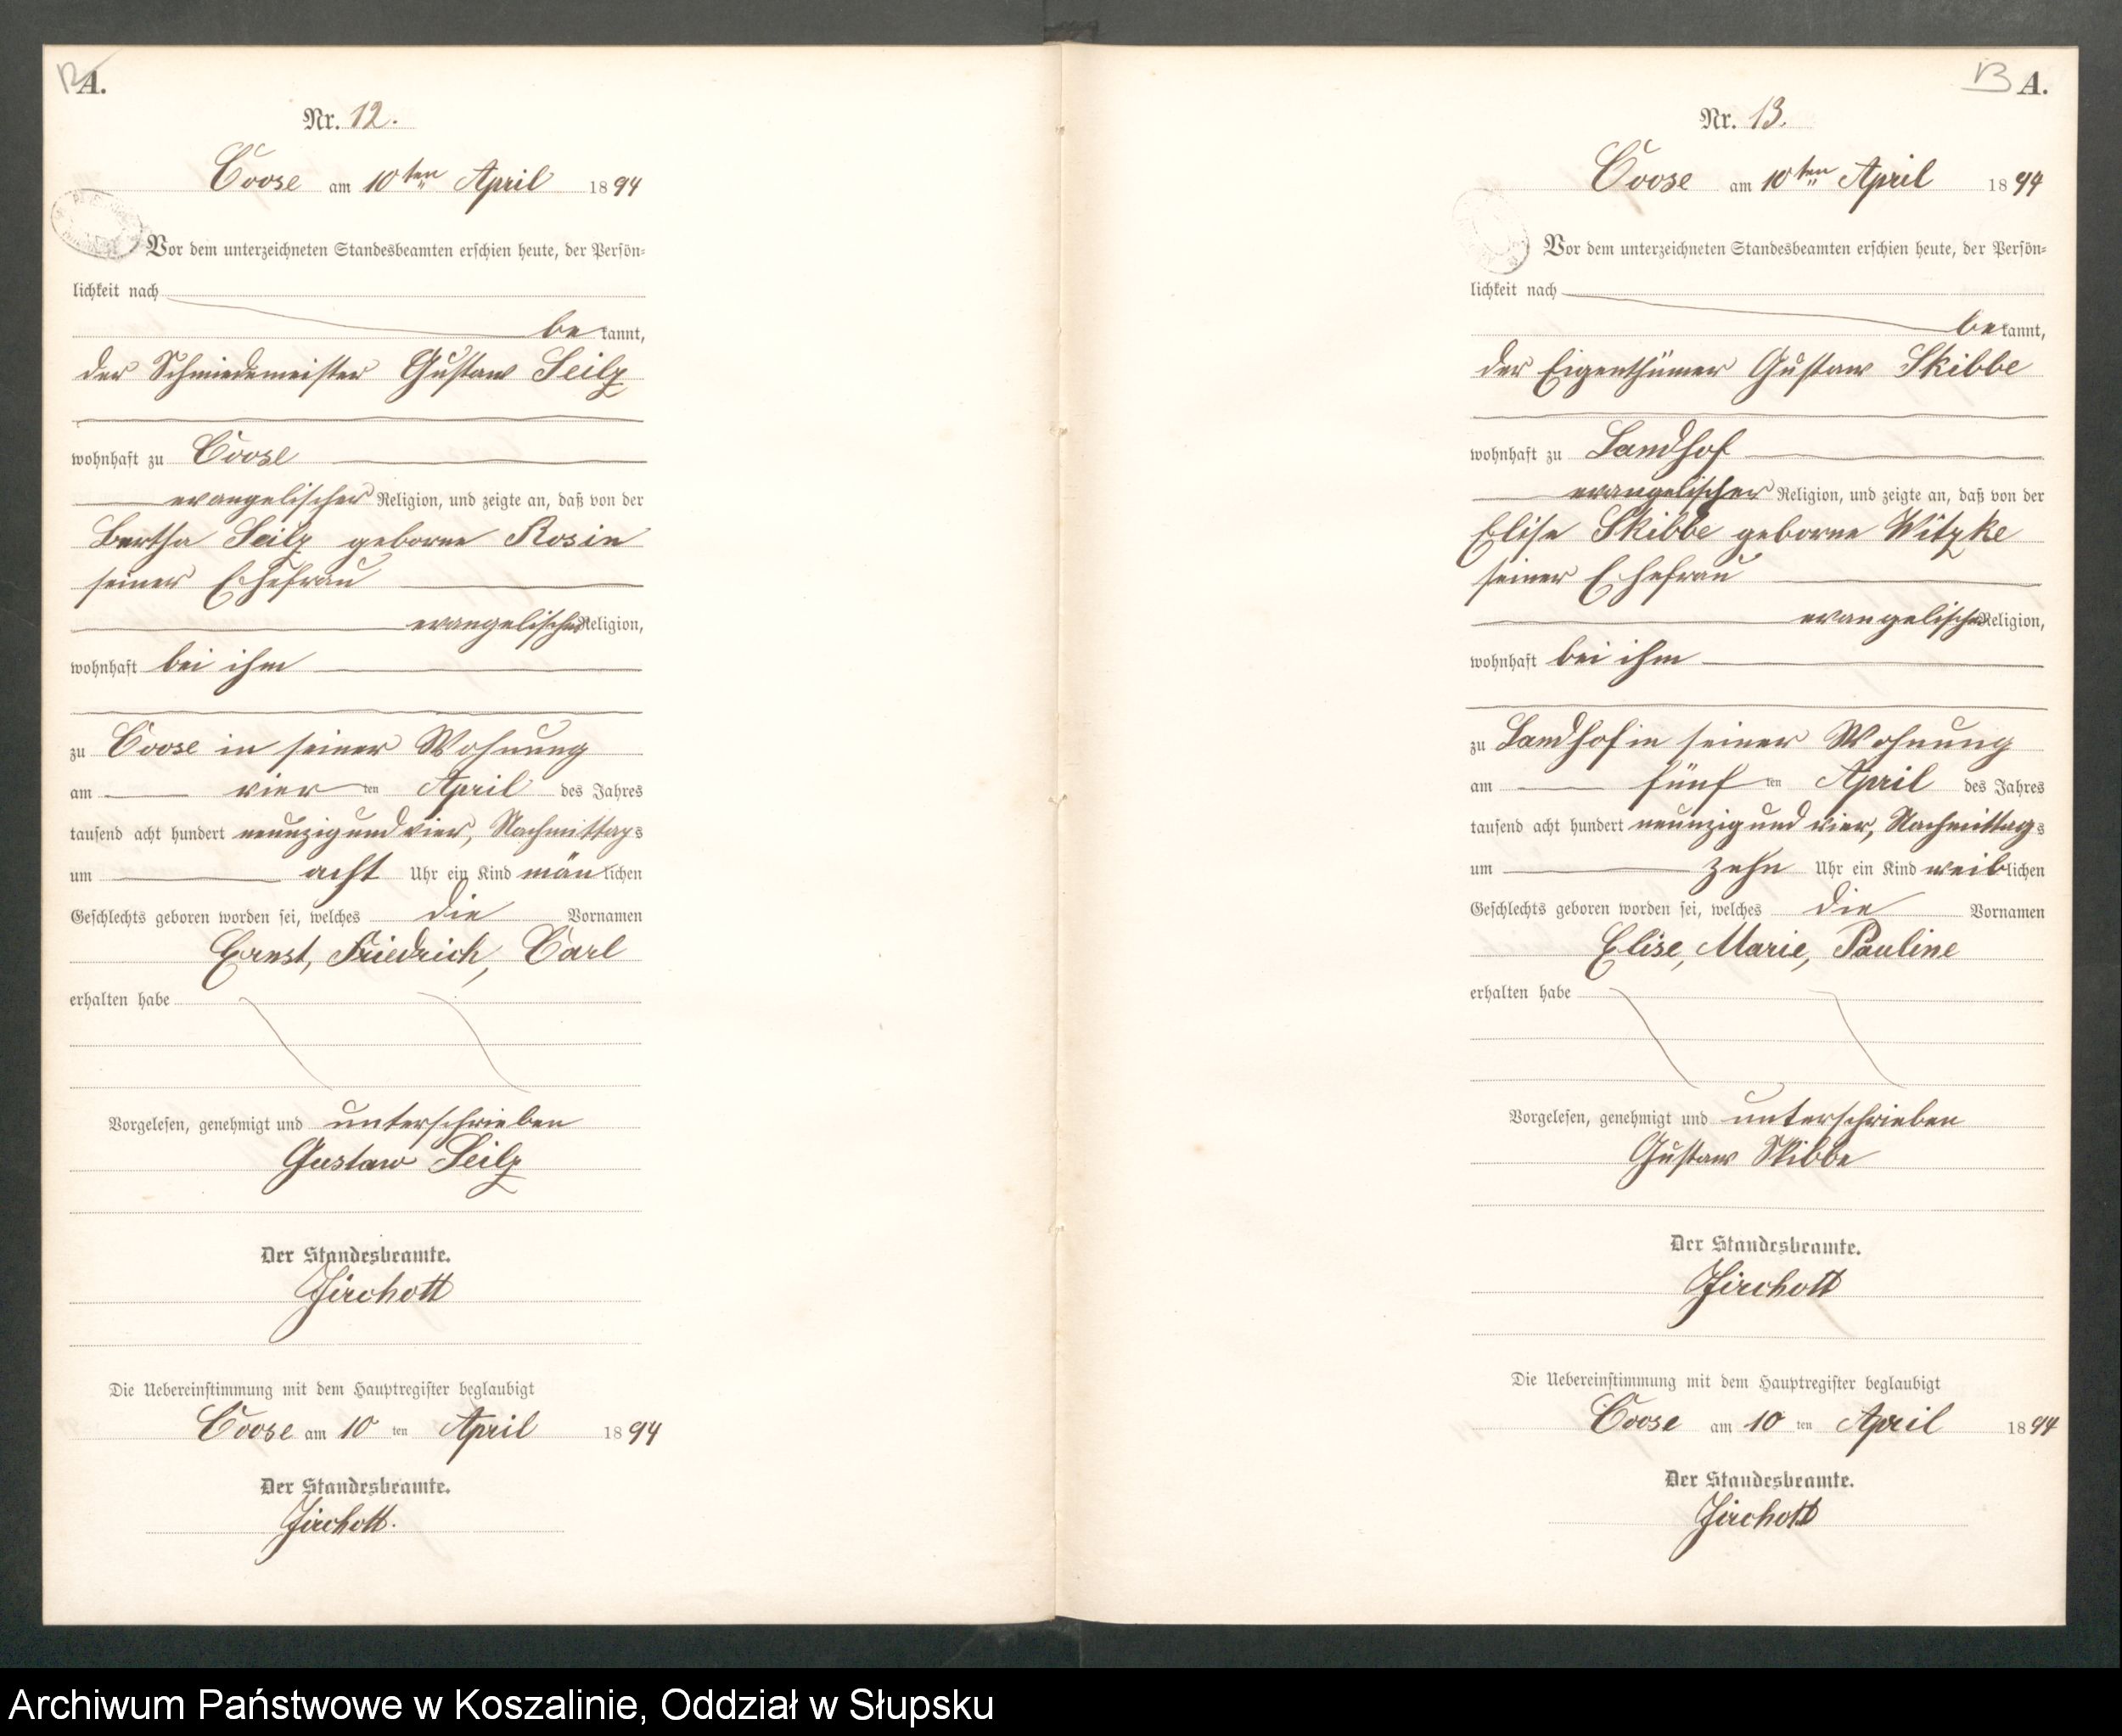 A.
Nr. 12.
Coose am 10ten April 1894
Vor dem unterzeichneten Standesbeamten erschien heute, der Persön-
lichkeit nach
bekannt,
der Schmiedemeister Gustav Seils
wohnhaft zu Coose
evangelischer Religion, und zeigte an, daß von der
Bertha Seils geborne Rosin
seiner Ehefrau
evangelischer Religion,
wohnhaft bei ihm
zu Coose in seiner Wohnung
am vier ten April des Jahres
tausend acht hundert neunzig und vier, Nachmittags
um acht Uhr ein Kind mänlichen
Geschlechts geboren worden sei, welches die Vornamen
Ernst, Friedrich, Carl
erhalten habe
Vorgelesen, genehmigt und unterschrieben
Gustav Seils
Der Standesbeamte.
Zirchott
Die Uebereinstimmung mit dem Hauptregister beglaubigt
Coose am 10 ten April 1894
Der Standesbeamte.
Zirchott.
13 A.
Nr. 13.
Coose am 10ten April 1894
Vor dem unterzeichneten Standesbeamten erschien heute, der Persön-
lichkeit nach
bekannt,
der Eigenthümer Gustav Skibbe
wohnhaft zu Sandhof
evangelischer Religion, und zeigte an, daß von der
Elise Skibbe geborne Witzke
seiner Ehefrau
evangelischer Religion,
wohnhaft bei ihm
zu Sandhof in seiner Wohnung
am fünf ten April des Jahres
tausend acht hundert neunzig und vier, Nachmittags
um zehn Uhr ein Kind weiblichen
Geschlechts geboren worden sei, welches die Vornamen
Elise, Marie, Pauline
erhalten habe
Vorgelesen, genehmigt und unterschrieben
Gustav Skibbe
Der Standesbeamte.
Zirchott
Die Uebereinstimmung mit dem Hauptregister beglaubigt
Coose am 10 ten April 1894
Der Standesbeamte.
Zirchott
Archiwum Państwowe w Koszalinie, Oddział w Słupsku